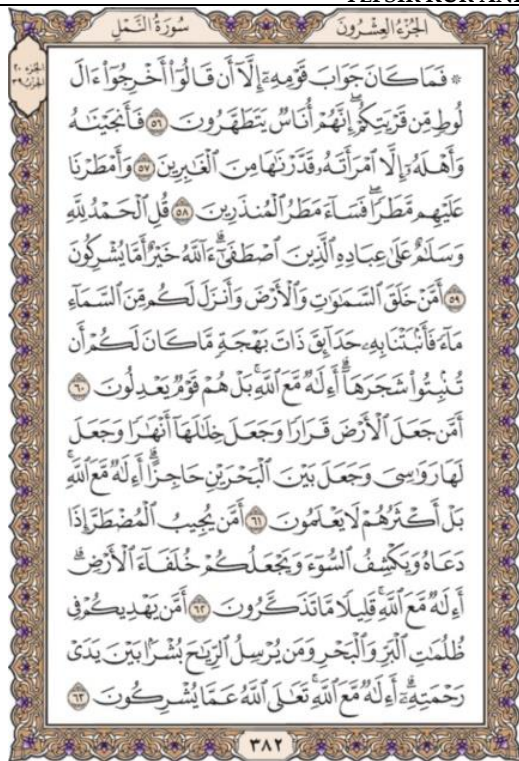 TEFSIR KUR'ANI
الجزء العشرون
سورة النمل
الجزء ٢٠
الحزب ٣٩
۞ فَمَا كَانَ جَوَابَ قَوْمِهِۦٓ إِلَّآ أَن قَالُوٓا۟ أَخْرِجُوٓا۟ ءَالَ
لُوطٍ مِّن قَرْيَتِكُمْ ۖ إِنَّهُمْ أُنَاسٌ يَتَطَهَّرُونَ ٥٦ فَأَنجَيْنَٰهُ
وَأَهْلَهُۥٓ إِلَّا ٱمْرَأَتَهُۥ قَدَّرْنَٰهَا مِنَ ٱلْغَٰبِرِينَ ٥٧ وَأَمْطَرْنَا
عَلَيْهِم مَّطَرًا ۖ فَسَآءَ مَطَرُ ٱلْمُنذَرِينَ ٥٨ قُلِ ٱلْحَمْدُ لِلَّهِ
وَسَلَٰمٌ عَلَىٰ عِبَادِهِ ٱلَّذِينَ ٱصْطَفَىٰٓ ۗ ءَآللَّهُ خَيْرٌ أَمَّا يُشْرِكُونَ
٥٩ أَمَّنْ خَلَقَ ٱلسَّمَٰوَٰتِ وَٱلْأَرْضَ وَأَنزَلَ لَكُم مِّنَ ٱلسَّمَآءِ
مَآءً فَأَنۢبَتْنَا بِهِۦ حَدَآئِقَ ذَاتَ بَهْجَةٍ مَّا كَانَ لَكُمْ أَن
تُنۢبِتُوا۟ شَجَرَهَآ ۗ أَءِلَٰهٌ مَّعَ ٱللَّهِ ۚ بَلْ هُمْ قَوْمٌ يَعْدِلُونَ ٦٠
أَمَّن جَعَلَ ٱلْأَرْضَ قَرَارًا وَجَعَلَ خِلَٰلَهَآ أَنْهَٰرًا وَجَعَلَ
لَهَا رَوَٰسِىَ وَجَعَلَ بَيْنَ ٱلْبَحْرَيْنِ حَاجِزًا ۗ أَءِلَٰهٌ مَّعَ ٱللَّهِ ۚ
بَلْ أَكْثَرُهُمْ لَا يَعْلَمُونَ ٦١ أَمَّن يُجِيبُ ٱلْمُضْطَرَّ إِذَا
دَعَاهُ وَيَكْشِفُ ٱلسُّوٓءَ وَيَجْعَلُكُمْ خُلَفَآءَ ٱلْأَرْضِ ۗ
أَءِلَٰهٌ مَّعَ ٱللَّهِ ۚ قَلِيلًا مَّا تَذَكَّرُونَ ٦٢ أَمَّن يَهْدِيكُمْ فِى
ظُلُمَٰتِ ٱلْبَرِّ وَٱلْبَحْرِ وَمَن يُرْسِلُ ٱلرِّيَٰحَ بُشْرًۢا بَيْنَ يَدَىْ
رَحْمَتِهِۦٓ ۗ أَءِلَٰهٌ مَّعَ ٱللَّهِ ۚ تَعَٰلَى ٱللَّهُ عَمَّا يُشْرِكُونَ ٦٣
٣٨٢